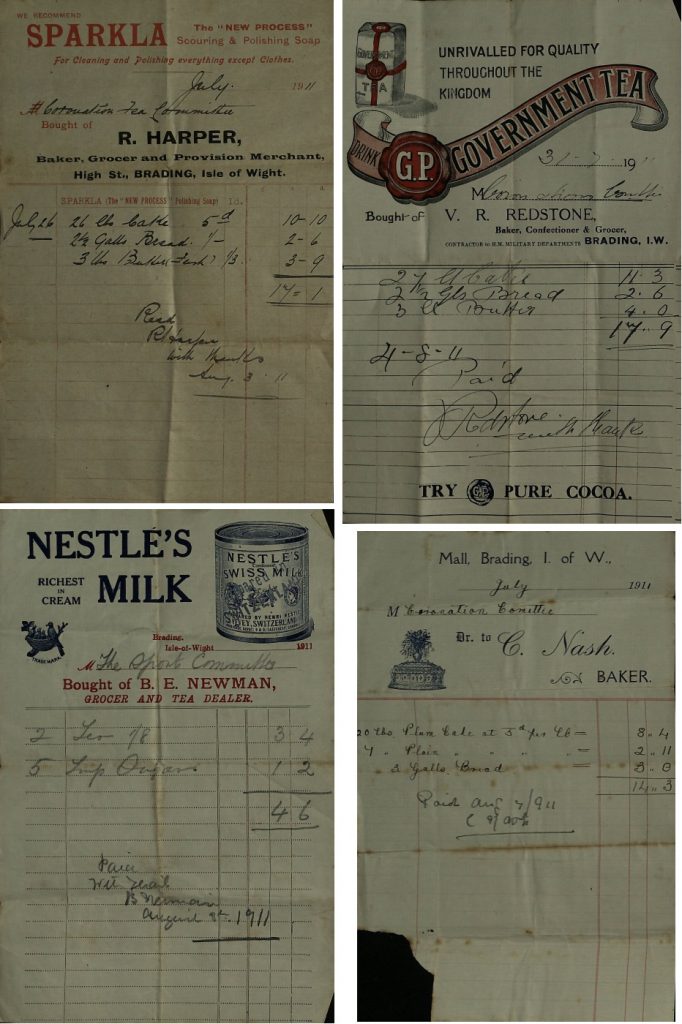 WE RECOMMEND
SPARKLA The "NEW PROCESS"
Scouring & Polishing Soap
For Cleaning and Polishing everything except Clothes.
July. 1911
M Coronation Tea Committee
Bought of
R. HARPER,
Baker, Grocer and Provision Merchant,
High St., BRADING, Isle of Wight.
SPARKLA (The "NEW PROCESS" Polishing Soap) 1d.
July 26 26 lbs Cake 5d 10-10
2½ Galls Bread 1/- 2-6
3 lbs Butter 1/3 3-9
17-1
Recd
R Harper
with thanks
Aug. 3. 11
UNRIVALLED FOR QUALITY
THROUGHOUT THE
KINGDOM
GOVERNMENT
G.P.
TEA
DRINK G.P. GOVERNMENT TEA
31-7-1911
M
Bought of V. R. REDSTONE,
Baker, Confectioner & Grocer,
CONTRACTOR to H.M. MILITARY DEPARTMENTS BRADING, I.W.
27 lb Cake 11.3
2½ Gls Bread 2.6
3 lb Butter 4.0
17.9
4-8-11
Paid
Redstone
with thanks
TRY G.P. PURE COCOA.
NESTLÉ'S
RICHEST
IN
CREAM
MILK
TRADE MARK
NESTLÉ'S
SWISS MILK
PREPARED BY HENRI NESTLÉ
VEVEY, SWITZERLAND
Brading,
Isle-of-Wight 1911
M The Sports Committee
Bought of B. E. NEWMAN,
GROCER AND TEA DEALER.
2 Tea 1/8 3 4
5 Lump Sugar 1 2
4 6
Paid
B Newman
August 1911
Mall, Brading, I. of W.,
July 1911
M Coronation Comittee
Dr. to C. Nash.
BAKER.
20 lbs Plum Cake at 5d per lb = 8 .. 4
7 " Plain " " " = 2 .. 11
3 Galls Bread 3 .. 0
14 .. 3
Paid Aug 7/911
C Nash